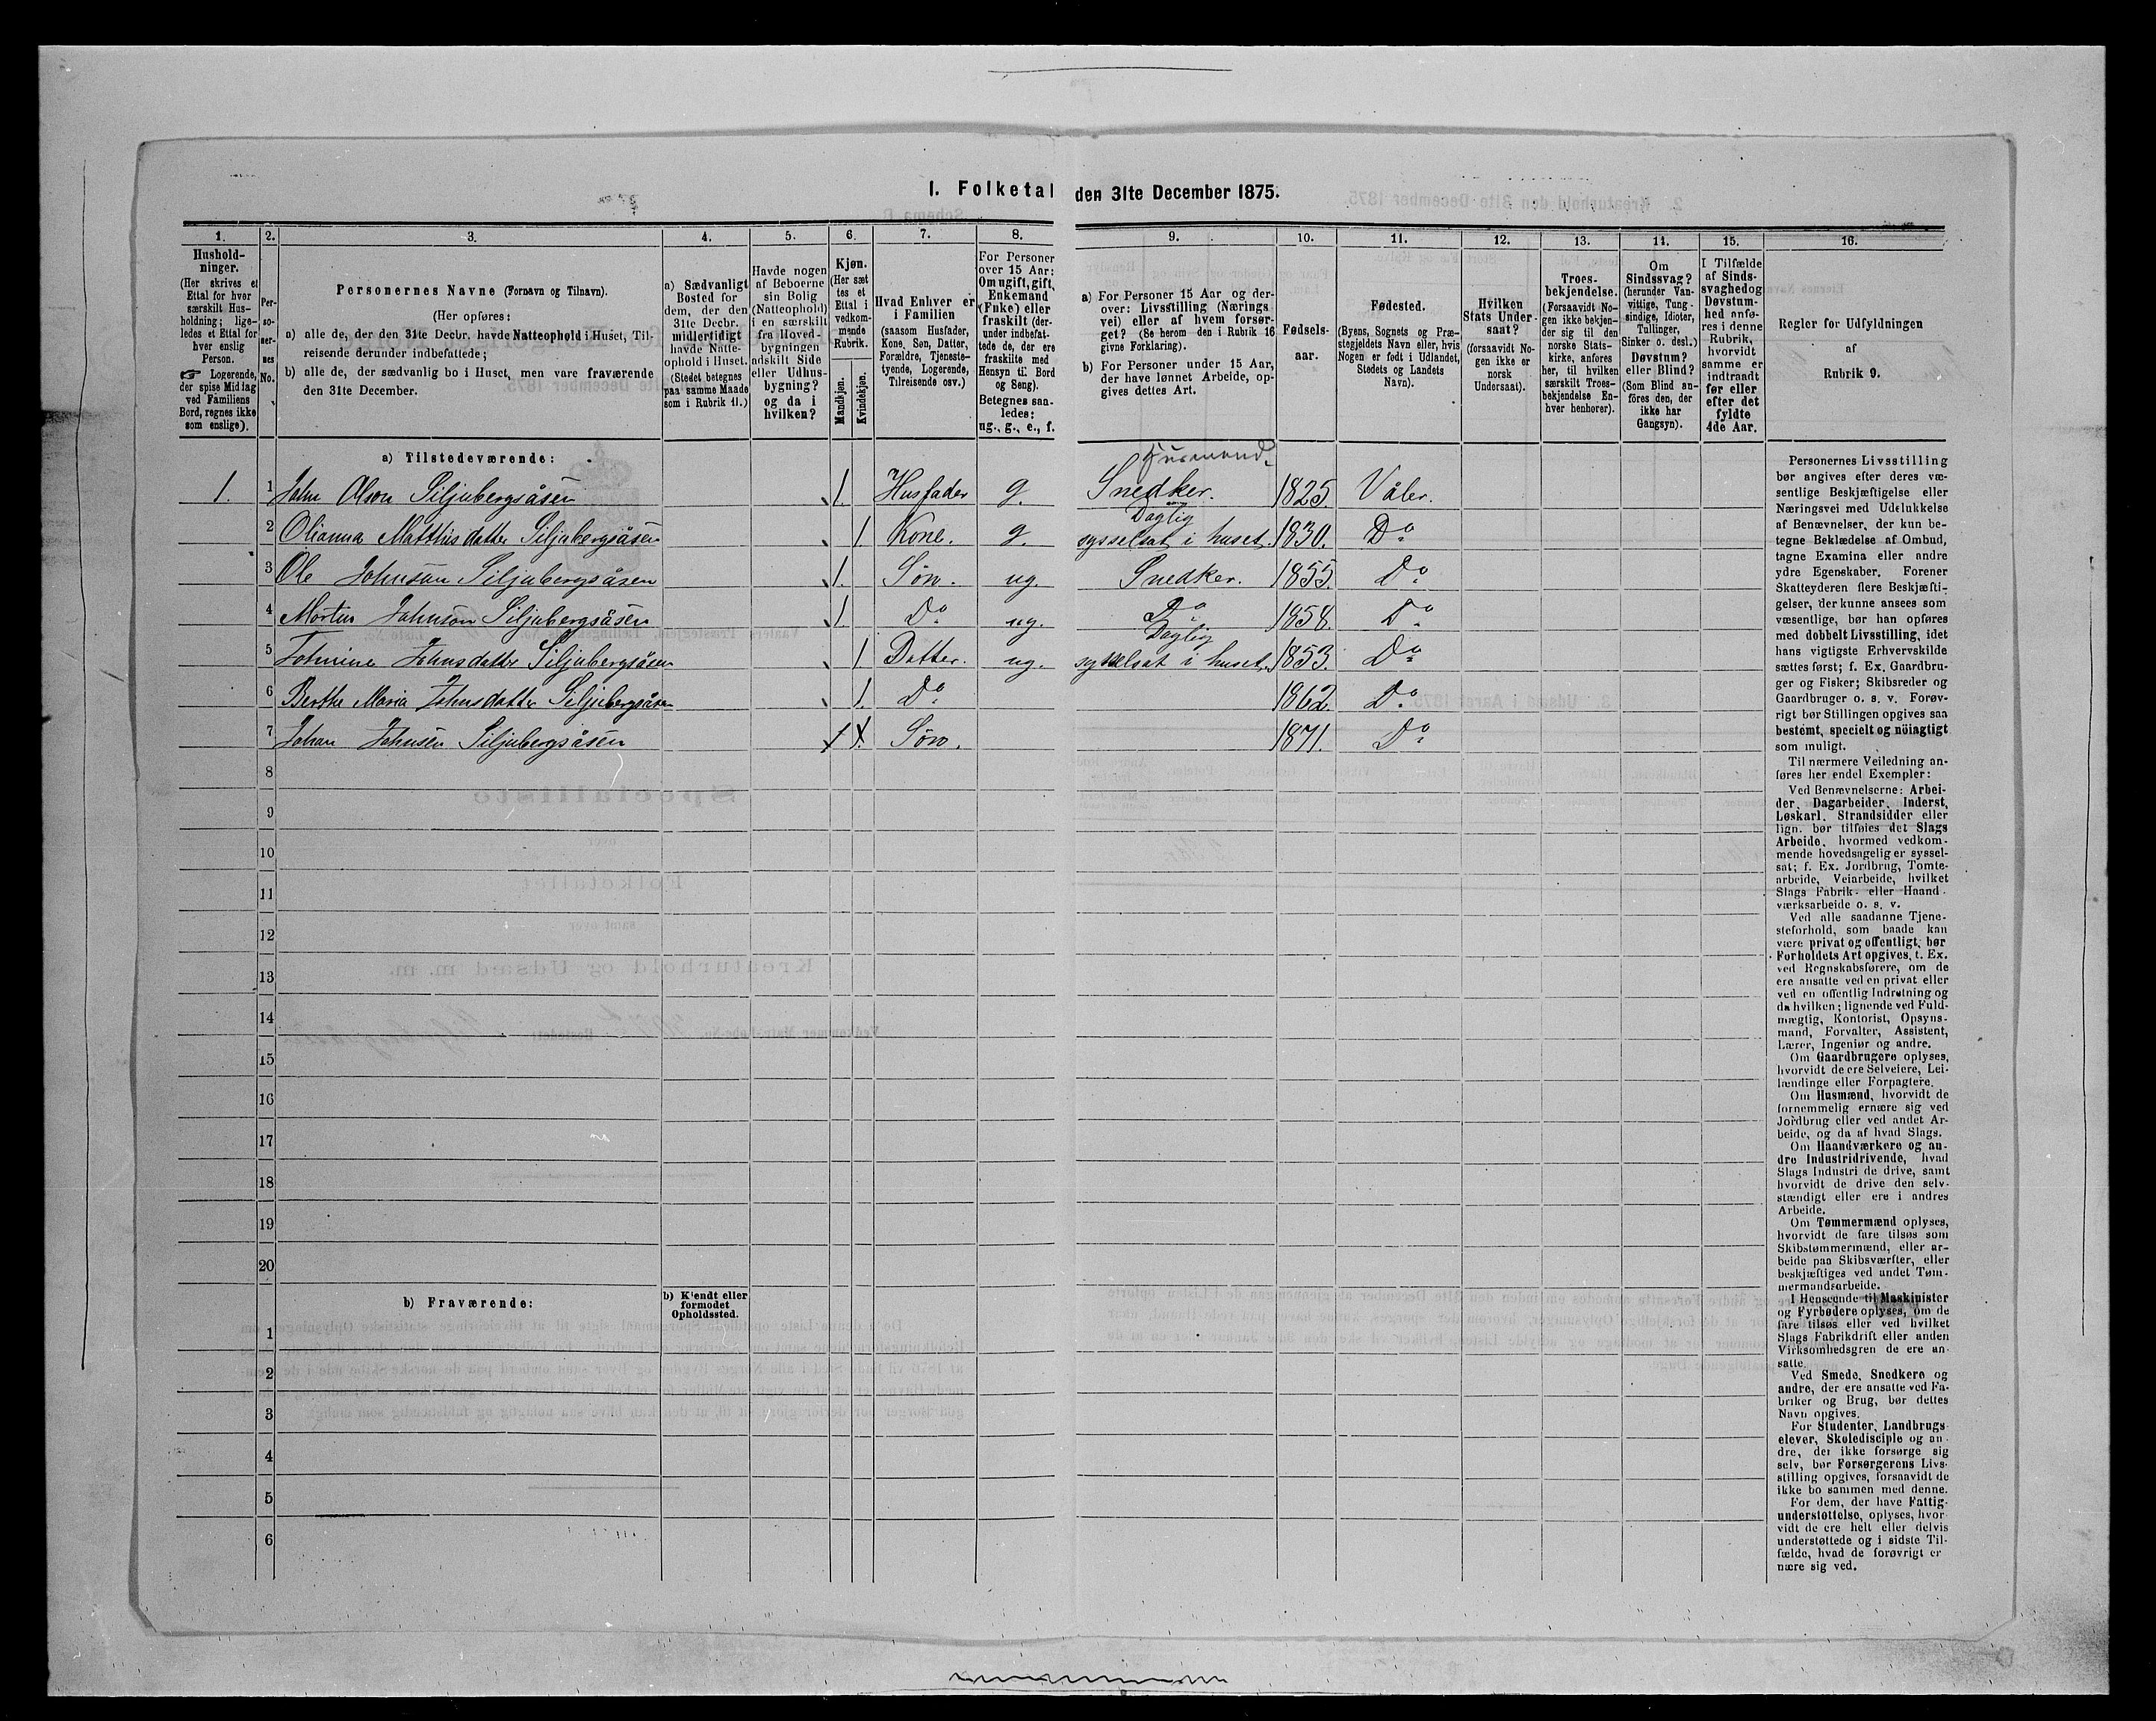 I. Folketal den 31te December 1875.
1.
Hushold-
ninger.
(Her skrives et
Ettal for hver
særskilt Hus-
holdning; lige-
ledes et Ettal for
hver enslig
Person.
☞ Logerende,
der spise Middag
ved Familiens
Bord, regnes ikke
som enslige).
2.
Per-
so-
ner-
nes
No.
3.
Personernes Navne (Fornavn og Tilnavn).
(Her opføres:
a) alle de, der den 31te Decbr. havde Natteophold i Huset, Til-
reisende derunder indbefattede;
b) alle de, der sædvanlig bo i Huset, men vare fraværende
den 31te December.
4.
a) Sædvanligt
Bosted for
dem, der den
31te Decbr.
midlertidigt
havde Natte-
ophold i Huset.
(Stedet betegnes
paa samme Maade
som i Rubrik 11.)
5.
Havde nogen
af Beboerne
sin Bolig
(Natteophold)
i en særskilt
fra Hoved-
bygningen
adskilt Side
eller Udhus-
bygning?
og da i
hvilken?
6.
Kjøn.
(Her sæt
tes et
Ettal i
vedkom-
mende
Rubrik.
Mandkjøn.
Kvindekjøn.
7.
Hvad Enhver er
i Familien
(saasom Husfader,
Kone, Søn, Datter,
Forældre, Tjeneste-
tyende, Logerende,
Tilreisende osv.)
8.
For Personer
over 15 Aar:
Om ugift, gift,
Enkemand
(Enke) eller
fraskilt (der-
under indbefat-
tede de, der ere
fraskilte med
Hensyn til Bord
og Seng).
Betegnes saa-
ledes:
ug., g., e., f.
9.
a) For Personer 15 Aar og der-
over: Livsstilling (Nærings
vei) eller af hvem forsør-
get? (Se herom den i Rubrik 16
givne Forklaring).
b) For Personer under 15 Aar,
der have lønnet Arbeide, op-
gives dettes Art.
10.
Fødsels-
aar.
11.
Fødested.
(Byens, Sognets og Præ-
stegjeldets Navn eller, hvis
Nogen er født i Udlandet,
Stedets og Landets
Navn).
12.
Hvilken
Stats Under-
saat?
(forsaavidt No-
gen ikke er
norsk
Undersaat).
13.
Troes-
bekjendelse.
(Forsaavidt No-
gen ikke bekjen-
der sig til den
norske Stats-
kirke, anføres
her, til hvilken
særskilt Troes-
bekjendelse En-
hver henhører).
14.
Om
Sindssvag?
(herunder Van-
vittige, Tung-
sindige, Idioter,
Tullinger,
Sinker o. desl.)
Døvstum?
eller Blind?
(Som Blind an-
føres den, der
ikke har
Gangsyn).
15.
I Tilfælde
af Sinds-
svaghed og
Døvstum-
hed anfø-
res i denne
Rubrik,
hvorvidt
samme er
indtraadt
før eller
efter det
fyldte
4de Aar.
16.
Regler for Udfyldningen
af
Rubrik 9.
a) Tilstedeværende:
Husmand.
1. 1 John Olson Siljubergsåsen 1. Husfader g. Snedker. 1825. Våler.
Daglig
2 Olianna Matthisdatter Siljubergsåsen 1. Kone. g. sysselsat i huset. 1830. Do
3 Ole Johnsøn Siljubergsåsen 1. Søn. ug. Snedker. 1855. Do
4 Martin Johnsøn Siljubergsåsen 1. Do ug. Do 1858. Do
Daglig
5 Johnine Johnsdatter Siljubergsåsen 1 Datter. ug. sysselsat i huset. 1853. Do
6 Berthe Maria Johnsdatter Siljubergsåsen 1. Do 1862. Do
7 Johan Johnsen Siljubergsåsen 1 Søn. 1871. Do
8
9
10
11
12
13
14
15
16
17
18
19
20
b) Fraværende:
b) Kjendt eller
formodet
Opholdssted.
1
2
3
4
5
6
Personernes Livsstilling
bør angives efter deres væ-
sentlige Beskjæftigelse eller
Næringsvei med Udelukkelse
af Benævnelser, der kun be-
tegne Beklædelse af Ombud,
tagne Examina eller andre
ydre Egenskaber. Forener
Skatteyderen flere Beskjæfti-
gelser, der kunne ansees som
væsentlige, bør han opføres
med dobbelt Livsstilling, idet
hans vigtigste Erhvervskilde
sættes først; f. Ex. Gaardbru-
ger og Fisker; Skibsreder og
Gaardbruger o. s. v. Forøv-
rigt bør Stillingen opgives saa
bestemt, specielt og nöiagtigt
som muligt.
Til nærmere Veiledning an-
føres her endel Exempler:
Ved Benævnelserne: Arbei-
der, Dagarbeider, Inderst,
Løskarl, Strandsidder eller
lign. bør tilføies det Slags
Arbeide, hvormed vedkom-
mende hovedsagelig er syssel-
sat; f. Ex. Jordbrug, Tomte-
arbeide, Veiarbeide, hvilket
Slags Fabrik- eller Haand-
værksarbeide o. s. v.
Ved alle saadanne Tjene-
steforhold, som baade kan
være privat og offentligt, bør
Forholdets Art opgives, f. Ex.
ved Regnskabsførere, om de
ere ansatte ved en privat eller
ved en offentlig Indretning og
da hvilken; lignende ved Fuld-
mægtig, Kontorist, Opsyns-
mand, Forvalter, Assistent,
Lærer, Ingeniør og andre.
Om Gaardbrugere oplyses,
hvorvidt de ere Selveiere, Lei-
lændinge eller Forpagtere.
Om Husmænd, hvorvidt de
fornemmelig ernære sig ved
Jordbrug eller ved andet Ar-
beide, og da af hvad Slags.
Om Haandværkere og an-
dre Industridrivende, hvad
Slags Industri de drive, samt
hvorvidt de drive den selv-
stændigt eller ere i andres
Arbeide.
Om Tømmermænd oplyses,
hvorvidt de fare tilsøs som
Skibstømmermænd, eller ar-
beide paa Skibsværfter, eller
beskjæftiges ved andet Tøm-
mermandsarbeide.
I Henseende til Maskinister
og Fyrbødere oplyses, om de
fare tilsøs eller ved hvilket
Slags Fabrikdrift eller anden
Virksomhedsgren de ere an-
satte.
Ved Smede, Snedkere og
andre, der ere ansatte ved Fa-
briker og Brug, bør dettes
Navn opgives.
For Studenter, Landbrugs-
elever, Skoledisciple og an-
dre, der ikke forsørge sig
selv, bør Forsørgerens Livs-
stilling opgives, forsaavidt de
ikke bo sammen med denne.
For dem, der have Fattig-
understøttelse, oplyses, hvor-
vidt de ere helt eller delvis
understøttede og i sidste Til-
fælde, hvad de forøvrigt er-
nære sig ved.